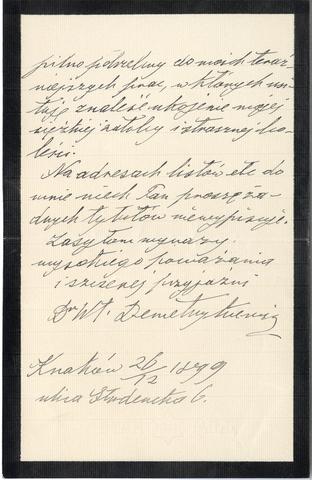 pilno potrzebny do moich teraź-
niejszych prac, w których usi-
łuję znaleść ukojenie mojej
ciężkiej żałoby i strasznej bo-
leści.
Na adresach listów etc do
mnie niech Pan proszę ża-
dnych tytułów nie wypisuje.
Zasyłam wyrazy
wysokiego poważania
i szczerej przyjaźni
Dr Wł. Demetrykiewicz
Kraków 26/12 1899
ulica Studencka 6.